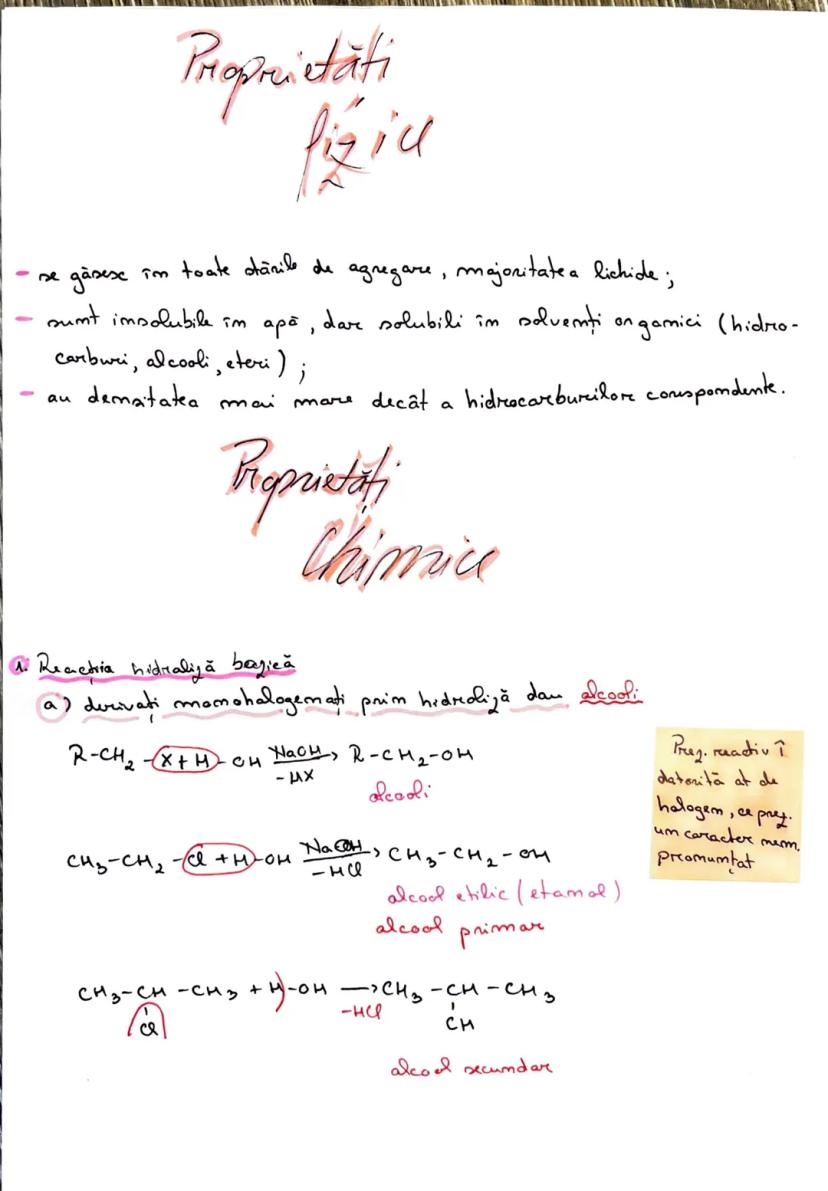 Proprietăți
fizice
- se găsesc în toate stările de agregare, majoritatea lichide;
- sunt insolubile în apă, dar solubili în solvenți organici (hidro-
carburi, alcooli, eteri);
- au densitatea mai mare decât a hidrocarburilor corespondente.
Proprietăți
Chimice
1. Reacția hidroliză bazică
a) derivați monohalogenați prin hidroliză dau alcooli
R-CH2-X+H-OH NaOH/-HX → R-CH2-OH
alcooli
Prez. reactiv î
datorită at de
halogen, ce prez.
un caracter
pronunțat
CH3-CH2-Cl+H-OH NaOH/-HCl → CH3-CH2-OH
alcool etilic (etanol)
alcool primar
CH3-CH-CH3 + H-OH → CH3-CH-CH3
Cl -HCl OH
alcool secundar